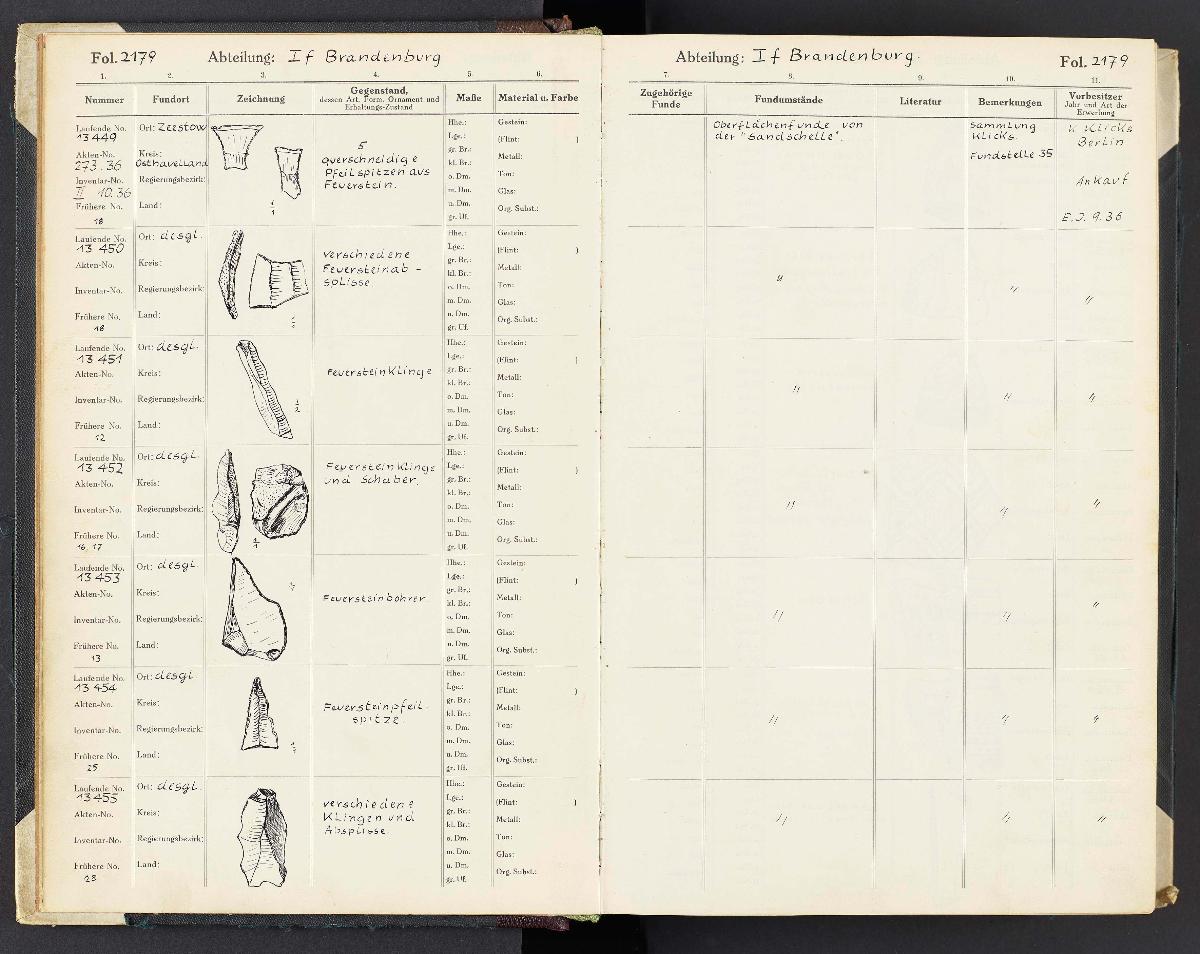 Fol. 2179 Abteilung: If Brandenburg
1. 2. 3. 4. 5. 6.
Nummer Fundort Zeichnung Gegenstand, dessen Art, Form, Ornament und Erhaltungs-Zustand Maße Material u. Farbe
Laufende No. 13449
Akten-No. 273.36
Inventar-No. II 10.36
Frühere No. 18
Ort: Zeestow
Kreis: Osthavelland
Regierungsbezirk:
Land:
1/1
5
querschneidige
Pfeilspitzen aus
Feuerstein.
Hhe.:
Lge.:
gr. Br.:
kl. Br.:
o. Dm.
m. Dm.
u. Dm.
gr. Uf.
Gestein:
(Flint: )
Metall:
Ton:
Glas:
Org. Subst.:
Laufende No. 13 450
Akten-No.
Inventar-No.
Frühere No. 18
Ort: desgl.
Kreis:
Regierungsbezirk:
Land:
verschiedene
Feuersteinab-
splisse
Hhe.:
Lge.:
gr. Br.:
kl. Br.:
o. Dm.
m. Dm.
u. Dm.
gr. Uf.
Gestein:
(Flint: )
Metall:
Ton:
Glas:
Org. Subst.:
Laufende No. 13 451
Akten-No.
Inventar-No.
Frühere No. 12
Ort: desgl.
Kreis:
Regierungsbezirk:
Land:
1/2
Feuersteinklinge
Hhe.:
Lge.:
gr. Br.:
kl. Br.:
o. Dm.
m. Dm.
u. Dm.
gr. Uf.
Gestein:
(Flint: )
Metall:
Ton:
Glas:
Org. Subst.:
Laufende No. 13 452
Akten-No.
Inventar-No.
Frühere No. 16, 17
Ort: desgl.
Kreis:
Regierungsbezirk:
Land:
1/1
Feuersteinklinge
und Schaber.
Hhe.:
Lge.:
gr. Br.:
kl. Br.:
o. Dm.
m. Dm.
u. Dm.
gr. Uf.
Gestein:
(Flint: )
Metall:
Ton:
Glas:
Org. Subst.:
Laufende No. 13 453
Akten-No.
Inventar-No.
Frühere No. 13
Ort: desgl.
Kreis:
Regierungsbezirk:
Land:
Feuersteinbohrer
Hhe.:
Lge.:
gr. Br.:
kl. Br.:
o. Dm.
m. Dm.
u. Dm.
gr. Uf.
Gestein:
(Flint: )
Metall:
Ton:
Glas:
Org. Subst.:
Laufende No. 13 454
Akten-No.
Inventar-No.
Frühere No. 25
Ort: desgl
Kreis:
Regierungsbezirk:
Land:
Feuersteinpfeil-
spitze.
Hhe.:
Lge.:
gr. Br.:
kl. Br.:
o. Dm.
m. Dm.
u. Dm.
gr. Uf.
Gestein:
(Flint: )
Metall:
Ton:
Glas:
Org. Subst.:
Laufende No. 13455
Akten-No.
Inventar-No.
Frühere No. 28
Ort: desgl.
Kreis:
Regierungsbezirk:
Land:
verschiedene
Klingen und
Absplisse.
Hhe.:
Lge.:
gr. Br.:
kl. Br.:
o. Dm.
m. Dm.
u. Dm.
gr. Uf.
Gestein:
(Flint: )
Metall:
Ton:
Glas:
Org. Subst.:
Abteilung: If Brandenburg. Fol. 2179
7. 8. 9. 10. 11.
Zugehörige Funde Fundumstände Literatur Bemerkungen Vorbesitzer Jahr und Art der Erwerbung
Oberflächenfunde von
der "Sandschelle".
Sammlung
Klicks.
Fundstelle 35
Klicks
Berlin
Ankauf
E.J. 9.36
" " "
" " "
" " "
" " "
" " "
" " "